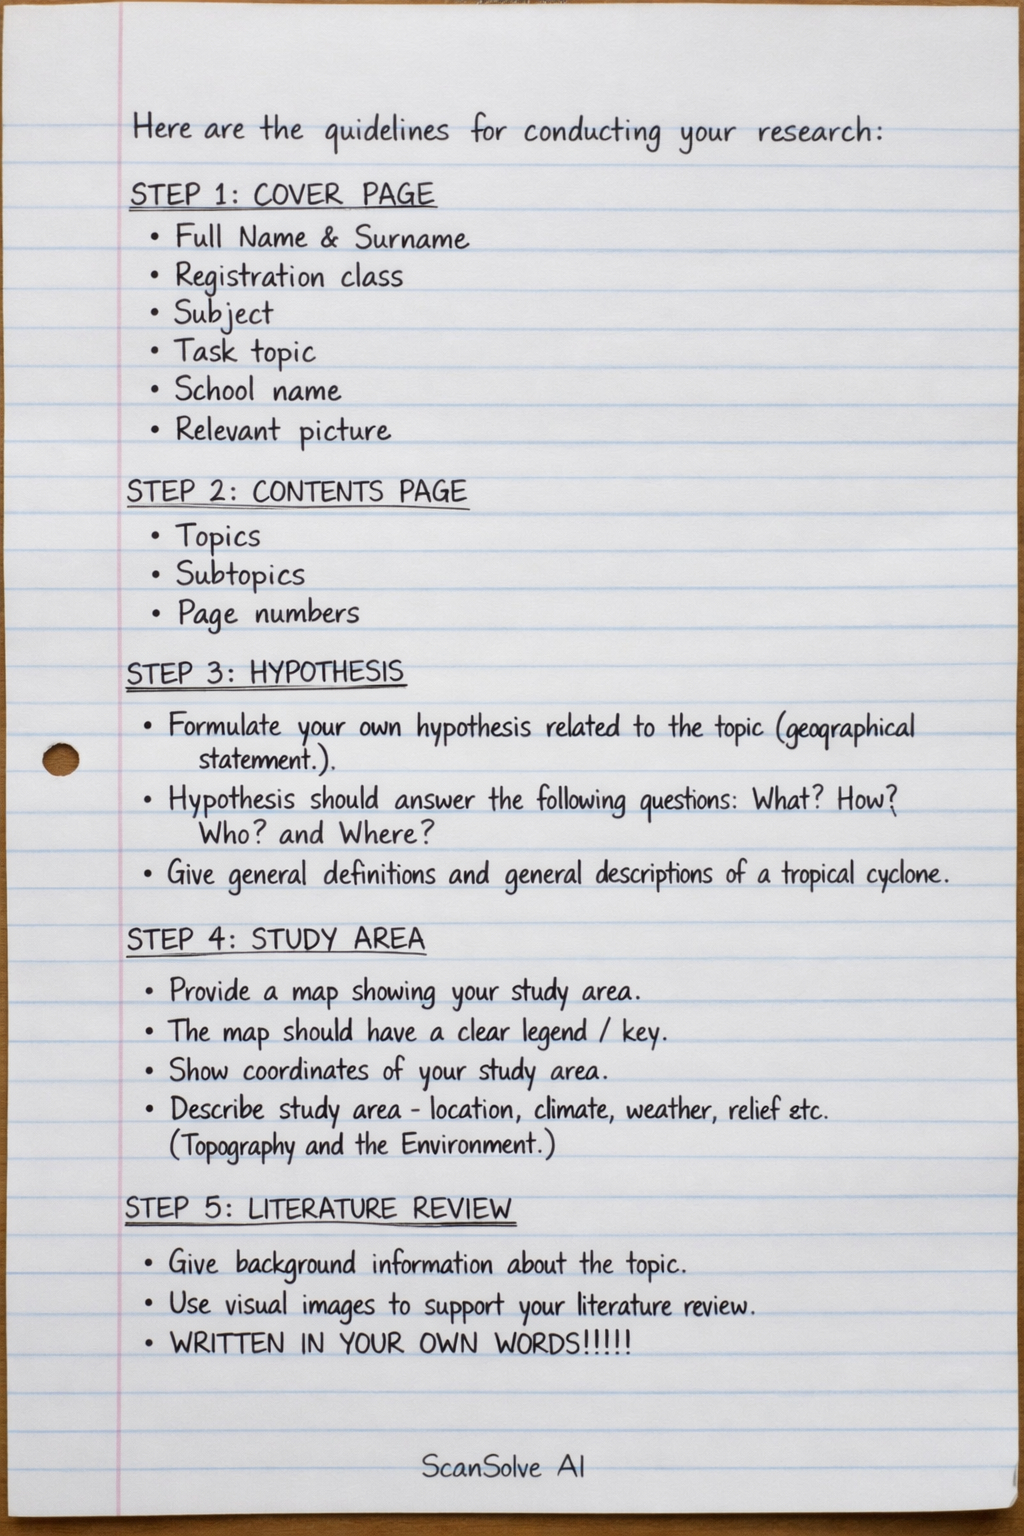 Here are the guidelines for conducting your research:
STEP 1: COVER PAGE
• Full Name & Surname
• Registration class
• Subject
• Task topic
• School name
• Relevant picture
STEP 2: CONTENTS PAGE
• Topics
• Subtopics
• Page numbers
STEP 3: HYPOTHESIS
• Formulate your own hypothesis related to the topic (geographical
statement.).
• Hypothesis should answer the following questions: What? How?
Who? and Where?
• Give general definitions and general descriptions of a tropical cyclone.
STEP 4: STUDY AREA
• Provide a map showing your study area.
• The map should have a clear legend / key.
• Show coordinates of your study area.
• Describe study area - location, climate, weather, relief etc.
(Topography and the Environment.)
STEP 5: LITERATURE REVIEW
• Give background information about the topic.
• Use visual images to support your literature review.
• WRITTEN IN YOUR OWN WORDS!!!!!
ScanSolve AI